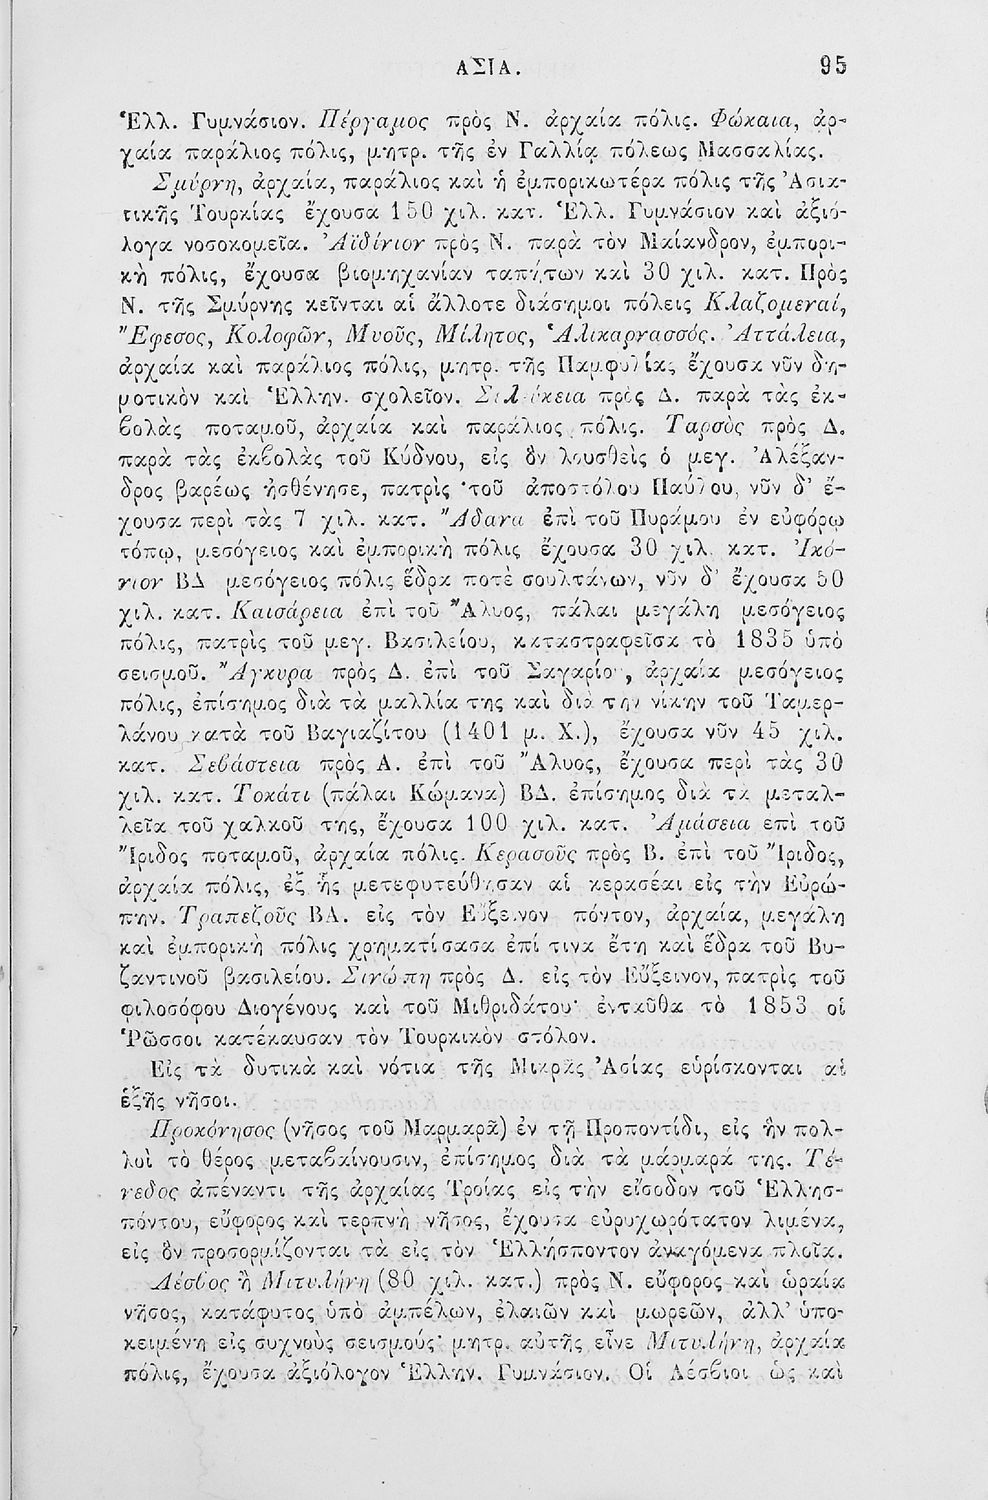 ΑΣΙΑ. 95
Ἑλλ. Γυμνάσιον. Πέργαμος πρὸς Ν. ἀρχαία πόλις. Φώκαια, ἀρ-
χαία παράλιος πόλις, μητρ. τῆς ἐν Γαλλίᾳ πόλεως Μασσαλίας.
Σμύρνη, ἀρχαία, παράλιος καὶ ἡ ἐμπορικωτέρα πόλις τῆς Ἀσια-
τικῆς Τουρκίας ἔχουσα 150 χιλ. κατ. Ἑλλ. Γυμνάσιον καὶ ἀξιό-
λογα νοσοκομεῖα. Ἀϊδίνιον πρὸς Ν. παρὰ τὸν Μαίανδρον, ἐμπορι-
κὴ πόλις, ἔχουσα βιομηχανίαν ταπήτων καὶ 30 χιλ. κατ. Πρὸς
Ν. τῆς Σμύρνης κεῖνται αἱ ἄλλοτε διάσημοι πόλεις Κλαζομεναί,
Ἔφεσος, Κολοφῶν, Μυοῦς, Μίλητος, Ἁλικαρνασσός. Ἀττάλεια,
ἀρχαία καὶ παράλιος πόλις, μητρ. τῆς Παμφυλίας ἔχουσα νῦν δη-
μοτικὸν καὶ Ἑλλην. σχολεῖον. Σελεύκεια πρὸς Δ. παρὰ τὰς ἐκ-
βολὰς ποταμοῦ, ἀρχαία καὶ παράλιος πόλις. Ταρσὸς πρὸς Δ.
παρὰ τὰς ἐκβολὰς τοῦ Κύδνου, εἰς ὃν λουσθεὶς ὁ μεγ. Ἀλέξαν-
δρος βαρέως ἠσθένησε, πατρὶς τοῦ ἀποστόλου Παύλου, νῦν δ' ἔ-
χουσα περὶ τὰς 7 χιλ. κατ. Ἄδανα ἐπὶ τοῦ Πυράμου ἐν εὐφόρῳ
τόπῳ, μεσόγειος καὶ ἐμπορικὴ πόλις ἔχουσα 30 χιλ. κατ. Ἰκό-
νιον ΒΔ μεσόγειος πόλις ἕδρα ποτὲ σουλτάνων, νῦν δ' ἔχουσα 50
χιλ. κατ. Καισάρεια ἐπὶ τοῦ Ἅλυος, πάλαι μεγάλη μεσόγειος
πόλις, πατρὶς τοῦ μεγ. Βασιλείου, καταστραφεῖσα τὸ 1835 ὑπὸ
σεισμοῦ. Ἄγκυρα πρὸς Δ. ἐπὶ τοῦ Σαγαρίου, ἀρχαία μεσόγειος
πόλις, ἐπίσημος διὰ τὰ μαλλία της καὶ διὰ τὴν νίκην τοῦ Ταμερ-
λάνου κατὰ τοῦ Βαγιαζίτου (1401 μ. Χ.), ἔχουσα νῦν 45 χιλ.
κατ. Σεβάστεια πρὸς Α. ἐπὶ τοῦ Ἅλυος, ἔχουσα περὶ τὰς 30
χιλ. κατ. Τοκάτι (πάλαι Κώμανα) ΒΔ. ἐπίσημος διὰ τὰ μεταλ-
λεῖα τοῦ χαλκοῦ της, ἔχουσα 100 χιλ. κατ. Ἀμάσεια ἐπὶ τοῦ
Ἴριδος ποταμοῦ, ἀρχαία πόλις. Κερασοῦς πρὸς Β. ἐπὶ τοῦ Ἴριδος,
ἀρχαία πόλις, ἐξ ἧς μετεφυτεύθησαν αἱ κερασέαι εἰς τὴν Εὐρώ-
πην. Τραπεζοῦς ΒΑ. εἰς τὸν Εὔξεινον πόντον, ἀρχαία, μεγάλη
καὶ ἐμπορικὴ πόλις χρηματίσασα ἐπί τινα ἔτη καὶ ἕδρα τοῦ Βυ-
ζαντινοῦ βασιλείου. Σινώπη πρὸς Δ. εἰς τὸν Εὔξεινον, πατρὶς τοῦ
φιλοσόφου Διογένους καὶ τοῦ Μιθριδάτου· ἐνταῦθα τὸ 1853 οἱ
Ῥῶσσοι κατέκαυσαν τὸν Τουρκικὸν στόλον.
Εἰς τὰ δυτικὰ καὶ νότια τῆς Μικρᾶς Ἀσίας εὑρίσκονται αἱ
ἑξῆς νῆσοι.
Προκόνησος (νῆσος τοῦ Μαρμαρᾶ) ἐν τῇ Προποντίδι, εἰς ἣν πολ-
λοὶ τὸ θέρος μεταβαίνουσιν, ἐπίσημος διὰ τὰ μάρμαρά της. Τέ-
νεδος ἀπέναντι τῆς ἀρχαίας Τροίας εἰς τὴν εἴσοδον τοῦ Ἑλλησ-
πόντου, εὔφορος καὶ τερπνὴ νῆσος, ἔχουσα εὐρυχωρότατον λιμένα,
εἰς ὃν προσορμίζονται τὰ εἰς τὸν Ἑλλήσποντον ἀναγόμενα πλοῖα.
Λέσβος ἢ Μιτυλήνη (80 χιλ. κατ.) πρὸς Ν. εὔφορος καὶ ὡραία
νῆσος, κατάφυτος ὑπὸ ἀμπέλων, ἐλαιῶν καὶ μωρεῶν, ἀλλ' ὑπο-
κειμένη εἰς συχνοὺς σεισμούς· μητρ. αὐτῆς εἶνε Μιτυλήνη, ἀρχαία
πόλις, ἔχουσα ἀξιόλογον Ἑλλην. Γυμνάσιον. Οἱ Λέσβιοι ὡς καὶ